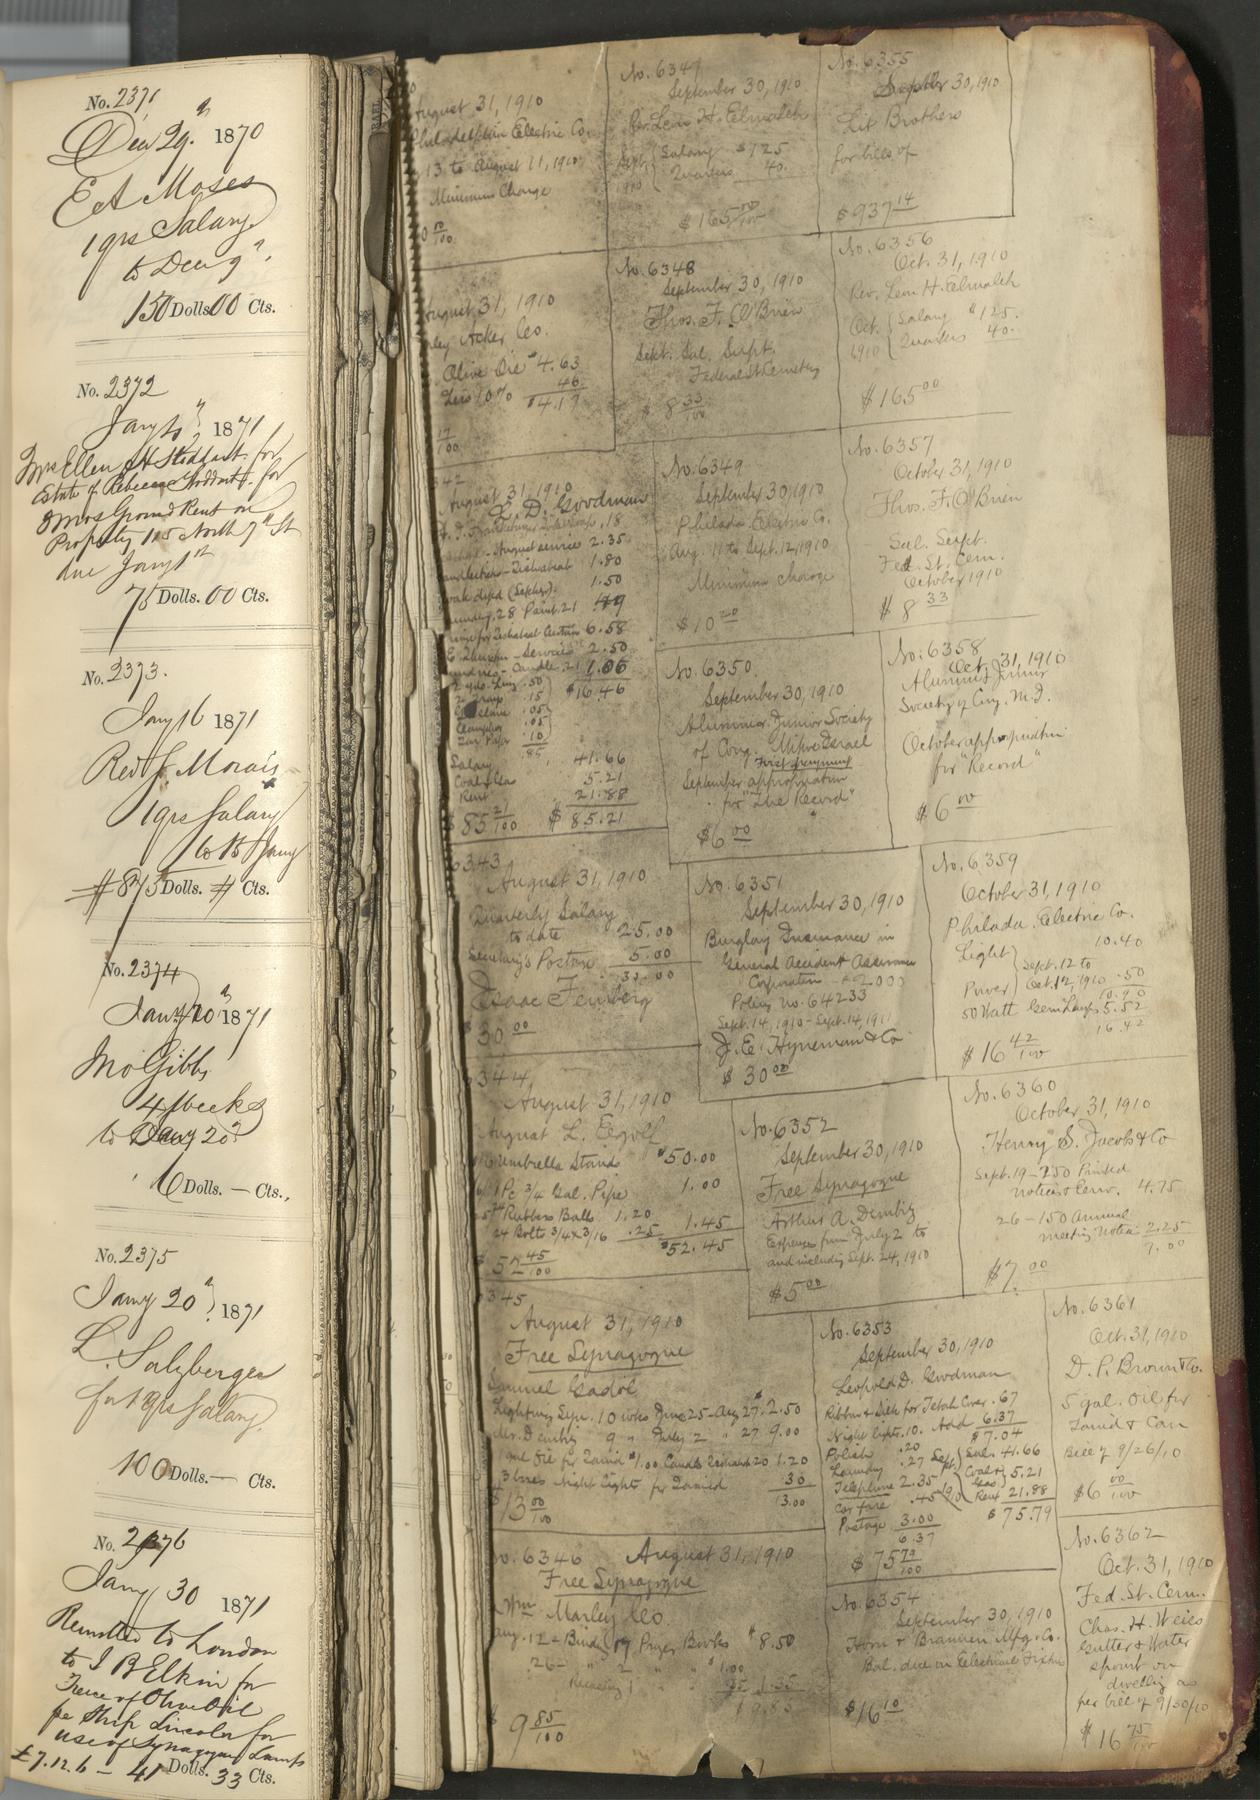 No. 2371
Dec 29. 1870
E A Moses
1 qrs Salary
to Decr 9".
150 Dolls 00 Cts.
No. 2372
1871
Mrs Ellen H Stoddart for
Estate of Rebecca Stoddart for
6 mos Ground Rent on
Property 115 North 7th St
due Jany 1st
75 Dolls. 00 Cts.
No. 2373.
Jany 16 1871
Rev S. Morais
1 qrs Salary
to 15 Jany
Dolls. Cts.
No. 2374
Jany 20" 1871
Jno Gibbs
4 Weeks
to Jany 20"
16 Dolls. — Cts.
No. 2375
Jany 20" 1871
L. Salzberger
for 1 qrs Salary
100 Dolls. — Cts.
No. 2376
Jany 30 1871
Remitted to London
to I B Elkin for
Tierce of Olive Oil
pe Ship Lincoln for
use of Synagogue Lamps
£7.12.6 — 41 Dolls. 33 Cts.
August 31, 1910
Philadelphia Electric Co.
13 to August 11, 1910
Minimum Charge
August 31, 1910
Acker Co.
Olive Oil $4.63
Less 10% 46
$4.17
17/100
342
August 31, 1910
L. D. Goodman
August service 2.35
1.80
1.50
28 Paint .21 .49
6.58
Services 2.50
Candle .21 1.06
$16.46
.50
.15
.05
.05
.10
.85
Salary 41.66
Coal & Gas 5.21
Rent 21.88
$85 21/100 $85.21
6343
August 31, 1910
Quarterly Salary
to date 25.00
Secretary's Postage 5.00
30.00
Isaac Feinberg
$30 00
6344
August 31, 1910
August L.
16 Umbrella Stands $50.00
1 Pc 3/4 Gal. Pipe 1.00
Rubber Balls 1.20
24 Bolts 3/4 x 3/16 .25 1.45
$52.45
$52 45/100
6345
August 31, 1910
Free Synagogue
Samuel Gadol
Lighting Syn. 10 wks June 25 - Aug 27 $2.50
A. Dembitz 9 " July 2 " 27 9.00
1 gal Oil for Tamid $1.00 Candle .20 1.20
3 boxes Night Lights for Tamid 30
13.00
$13 00/100
No. 6346 August 31, 1910
Free Synagogue
Wm Marley & Co.
Aug. 12 - Bind'g 17 Prayer Books $8.50
26 - " 2 " " $1.00
1 .35 1.35
$9.85
$9 85/100
No. 6347
September 30, 1910
Rev. Leon H. Elmaleh
Sept. 1910 { Salary $125
Quarters 40.
$165 00/100
No. 6348
September 30, 1910
Thos. F. O'Brien
Sept. Sal. Supt.
Federal St Cemetery
$8 33/100
No. 6349
September 30, 1910
Philada. Electric Co.
Aug. 11 to Sept. 12, 1910
Minimum Charge
$10 20
No. 6350
September 30, 1910
Alumni & Junior Society
of Cong. Mikve Israel
First payment
September appropriation
for "The Record"
$6 00
No. 6351
September 30, 1910
Burglary Insurance in
General Accident Assurance
Corporation - $2000
Policy no. 64233
Sept. 14, 1910 - Sept. 14, 1911
J. E. Hyneman & Co
$30 00
No. 6352
September 30, 1910
Free Synagogue
Arthur A. Dembitz
Expenses from July 2 to
and including Sept. 24, 1910
$5 00
No. 6353
September 30, 1910
Leopold D. Goodman
Ribbon & Silk for Tebah Cover .67
Night lights .10. Add 6.37
$7.04
Polish .20
Laundry .27
Telephone 2.35
Car fare .45
Postage 3.00
6.37
Sept. 1910 { Sal. 41.66
Coal & Gas 5.21
Rent 21.88
$75.79
$75 79/100
No. 6354
September 30, 1910
Horn & Brannen Mfg. Co.
Bal. due on Electrical Fixtures
$16 10
No. 6355
September 30, 1910
Lit Brothers
for bills of
$937 14
No. 6356
Oct. 31, 1910
Rev. Leon H. Elmaleh
Oct. 1910 { Salary $125.
Quarters 40.
$165 00
No. 6357
October 31, 1910
Thos. F. O'Brien
Sal. Supt.
Fed. St. Cem.
October 1910
$8 33
No. 6358
Oct. 31, 1910
Alumni & Junior
Society of Cong. M. I.
October appropriation
for "Record"
$6 00
No. 6359
October 31, 1910
Philada. Electric Co.
Light } 10.40
Sept. 12 to
Power } Oct. 12, 1910 .50
10.90
50 Watt Gem Lamps 5.52
16.42
$16 42/100
No. 6360
October 31, 1910
Henry S. Jacobs & Co
Sept. 19 - 250 Printed
notices & Env. 4.75
26 - 150 Annual
meeting Notices 2.25
7.00
$7. 00
No. 6361
Oct. 31, 1910
D. P. Brown & Co.
5 gal. Oil for
Tamid & Can
Bill of 9/26/10
$6 00/100
No. 6362
Oct. 31, 1910
Fed. St. Cem.
Chas. H. Weiss
Gutter & Water
spout on
dwelling as
per bill of 9/30/10
$16 75/100